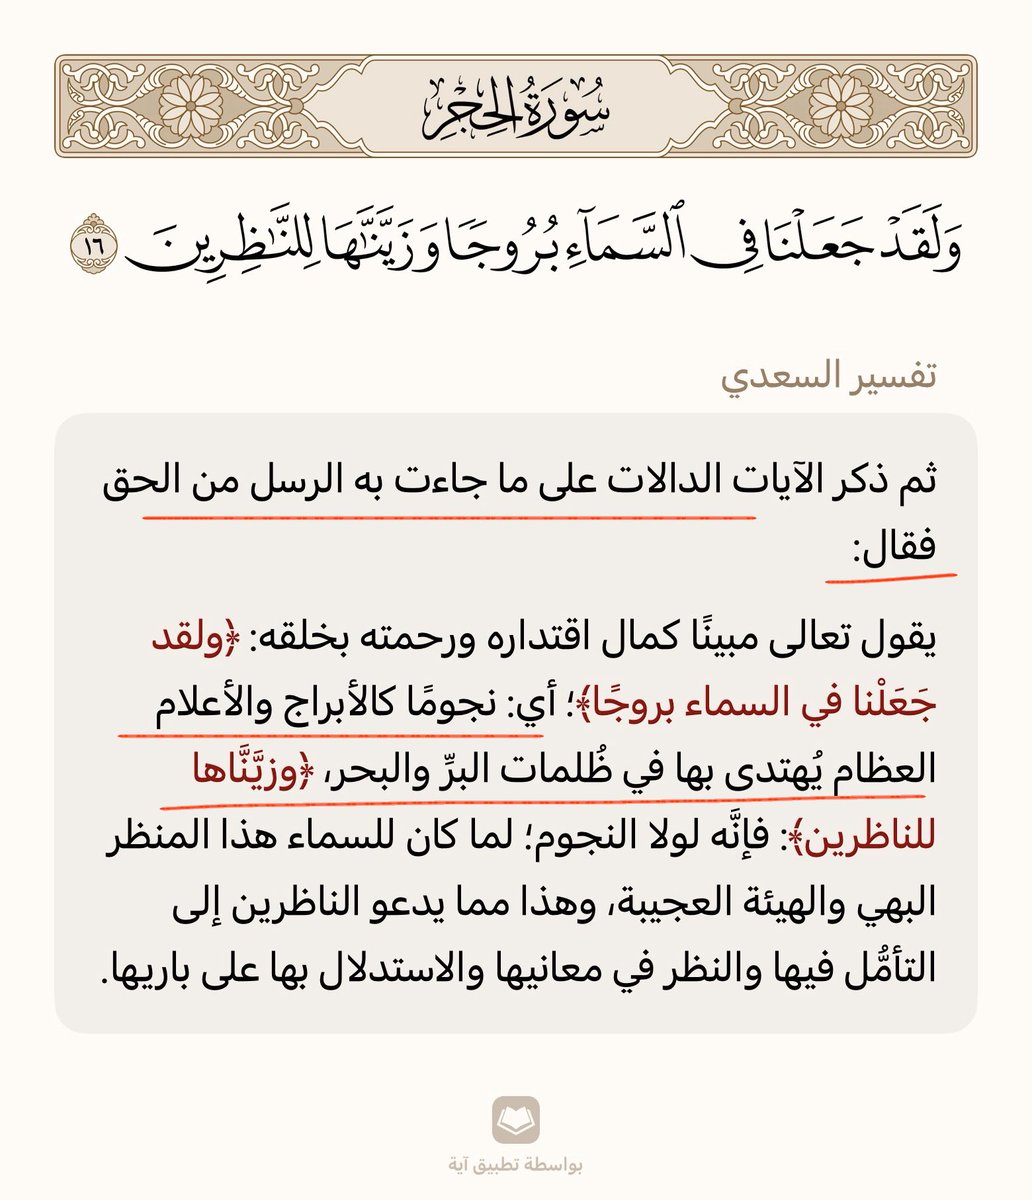 سُورَةُ الحِجْرِ
وَلَقَدْ جَعَلْنَا فِي ٱلسَّمَآءِ بُرُوجًا وَزَيَّنَّٰهَا لِلنَّٰظِرِينَ ١٦
تفسير السعدي
ثم ذكر الآيات الدالات على ما جاءت به الرسل من الحق
فقال:
يقول تعالى مبينًا كمال اقتداره ورحمته بخلقه: ﴿ولقد
جَعَلْنا في السماء بروجًا﴾؛ أي: نجومًا كالأبراج والأعلام
العظام يُهتدى بها في ظُلمات البرِّ والبحر، ﴿وزيَّنَّاها
للناظرين﴾: فإنَّه لولا النجوم؛ لما كان للسماء هذا المنظر
البهي والهيئة العجيبة، وهذا مما يدعو الناظرين إلى
التأمُّل فيها والنظر في معانيها والاستدلال بها على باريها.
بواسطة تطبيق آية